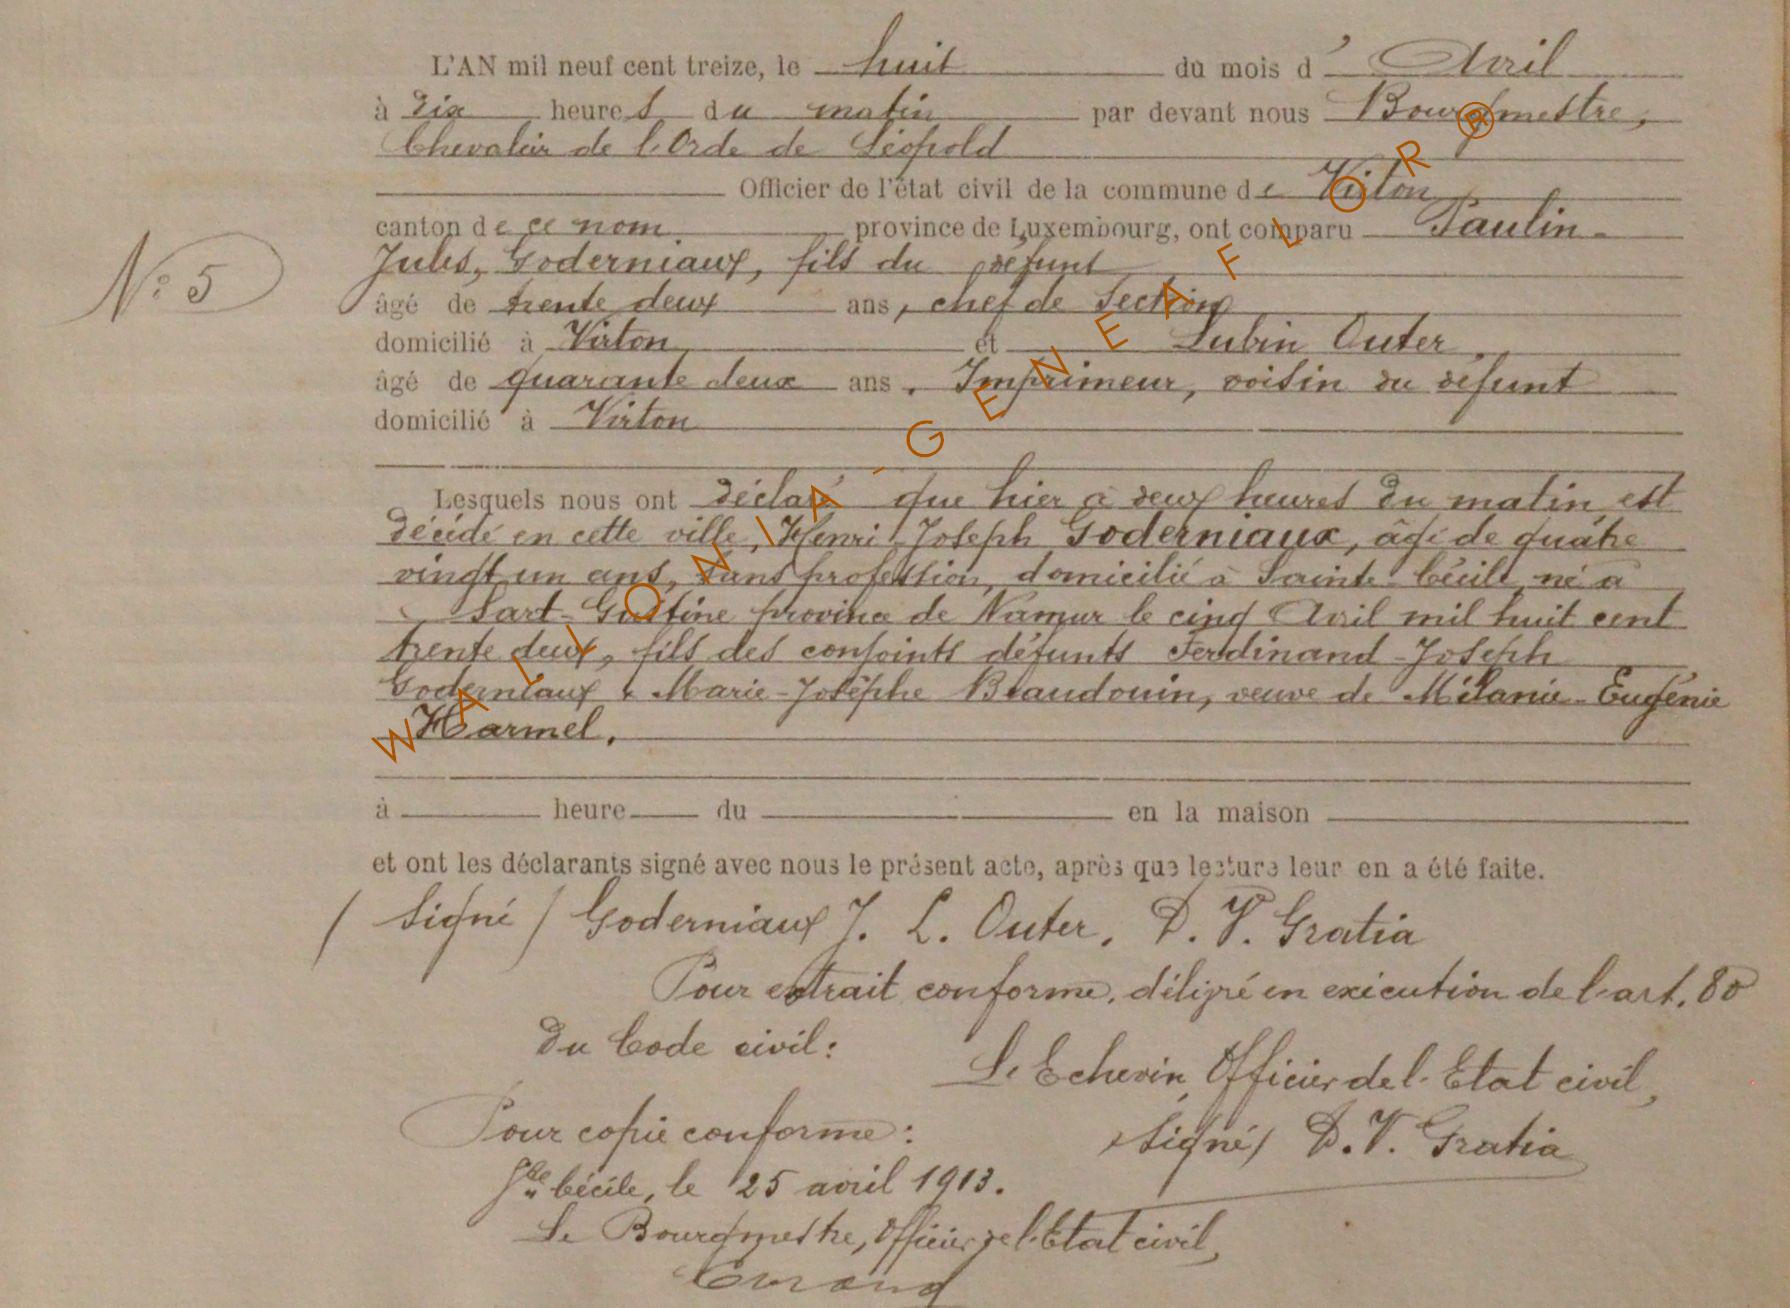 L'AN mil neuf cent treize, le huit du mois d' Avril
à dix heures du matin par devant nous Bourgmestre,
Chevalier de l'Orde de Léopold
Officier de l'état civil de la commune de Virton
canton de ce nom. province de Luxembourg, ont comparu Paulin-
Jules, Goderniaux, fils du défunt
N° 5
âgé de trente deux ans, chef de Section
domicilié à Virton et Lubin Outer,
âgé de quarante deux ans. Imprimeur, voisin du défunt
domicilié à Virton
Lesquels nous ont déclaré que hier à deux heures du matin, est
décédé en cette ville, Henri-Joseph Goderniaux, âgé de quatre
vingt un ans, sans profession, domicilié à Sainte-Cécile, né à
Sart-Custine province de Namur le cinq Avril mil huit cent
trente deux, fils des conjoints défunts Ferdinand-Joseph
Goderniaux & Marie-Josèphe Beaudouin, veuve de Mélanie-Eugénie
Harmel.
à heure du en la maison
et ont les déclarants signé avec nous le présent acte, après que lecture leur en a été faite.
(signé) Goderniaux J. L. Outer. D. V. Gratia
Pour extrait conforme, délivré en exécution de l'art. 80
du Code civil:
Le Echevin, Officier de l'Etat civil,
Pour copie conforme:
(signé) D. V. Gratia
Ste Cécile, le 25 avril 1913.
Le Bourgmestre, Officier de l'Etat civil,
WALLONIA-GENEAFLOR®